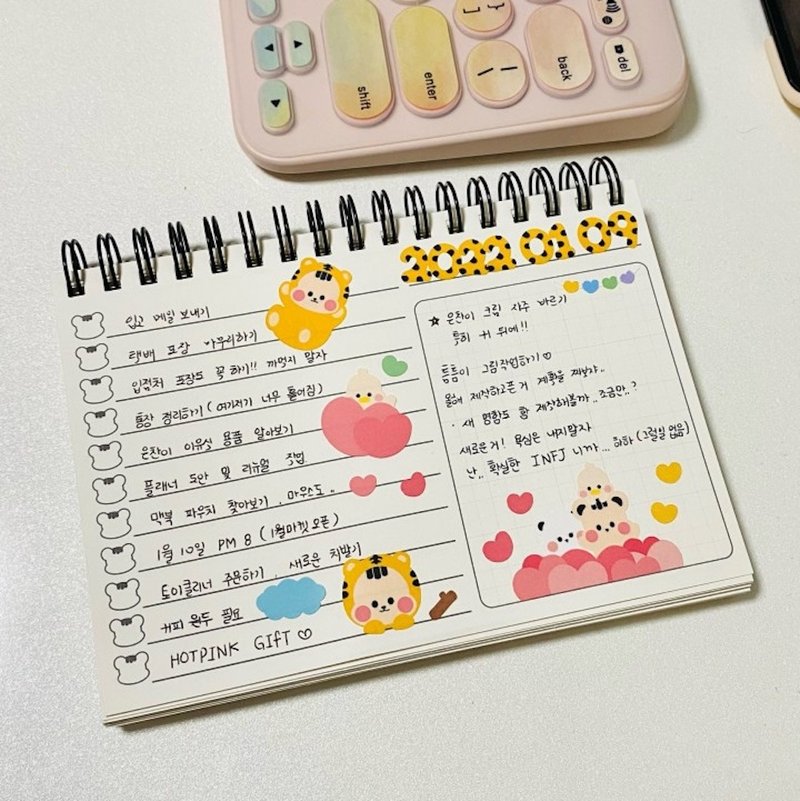 shift
enter
} ]
| \
back
del
2022 01 09
입고 메일 보내기
택배 포장 마무리하기
입점처 포장도 꼭 하기!! 까먹지 말자
통장 정리하기 (여기저기 너무 흩어짐)
은찬이 이유식 용품 알아보기
플래너 도안 및 리뉴얼 작업
맥북 파우치 찾아보기, 마우스도..
1월 10일 PM 8 (1월마켓오픈)
토이클리너 주문하기, 새로운 치발기
커피 원두 필요
HOTPINK GIFT ♡
☆ 은찬이 크림 자주 바르기
특히 귀 뒤에!!
틈틈이 그림작업하기♡
올해 제작하고픈거 계획을 짜보자..
· 새 명함도 함 제작해볼까..조금만..?
새로운거! 욕심은 내지말자
난.. 확실한 INFJ 니까... 하하 (그럴일 없음)